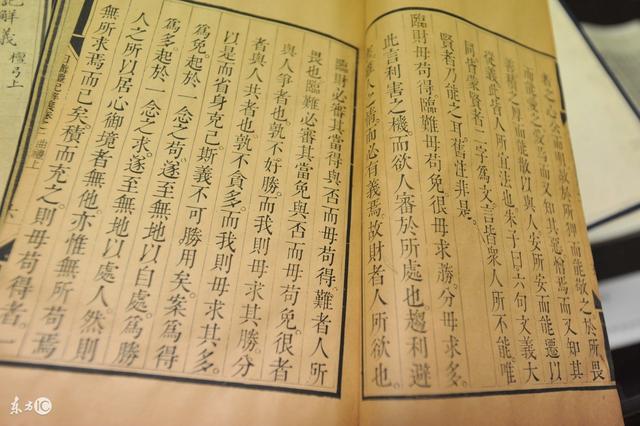 者之心公而明故於所狎而能敬之於所畏
而能愛之愛焉而又知其惡憎焉而又知其
善積焉而能散以與人安所安而能遷以
從義此皆人所宜法也朱子曰六句文義大
同皆蒙賢者二字為文言皆衆人所不能唯
賢者乃能之耳舊注非是。
臨財毋苟得。臨難毋苟免。很毋求勝。分毋求多。
此言利害之機。而欲人審於所處也。趨利避
雖人之情而必有義焉。故財者人所欲也。
臨財必審其當得與否而毋苟得。難者人所
畏也。臨難必審其當免與否而毋苟免。很者
與人爭者也。孰不好勝。而我則毋求其勝。分
者與人共者也。孰不貪多。而我則毋求其多。
以是而省身克己。斯義不可勝用矣。案為得
為免。起於一念之苟。遂至無地以自處。為勝
為多。起於一念之求。遂至無地以處人。然則
人之所以居心御境者無他。亦惟無所苟焉
無所求焉而已矣。積而充之。則毋苟得者。一
日講禮記解義 卷二 曲禮上
記解義 檀弓上
東方IC